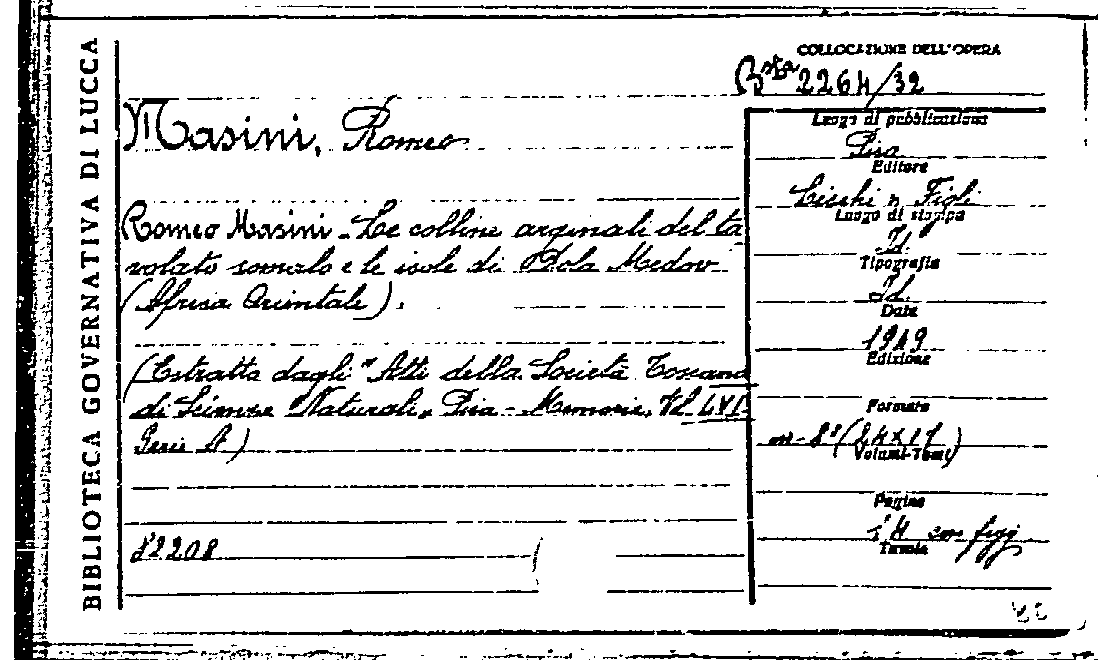 BIBLIOTECA GOVERNATIVA DI LUCCA
COLLOCAZIONE DELL'OPERA
Bsta 2264/32
Masini, Romeo
Romeo Masini - Le colline arginali del ta
volato somalo e le isole di Bola Medow
(Africa Orientale).
(Estratto dagli "Atti della Società Toscana
di Scienze Naturali" Pisa - Memorie, Vol. LVI
Serie A)
82208
Luogo di pubblicazione
Pisa
Editore
Figli
Luogo di stampa
Id.
Tipografia
Id.
Data
1949
Edizione
Formato
in-8° (24×17)
Volumi-Tomi
Pagine
14 con figg
Tavole